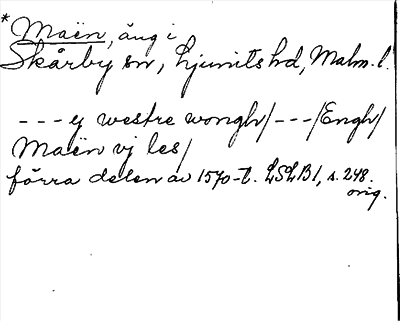 * Maën, äng i
Skårby sn, Ljunits hd, Malm. l.
--- ej westre wongh/---/Engh/
Maën vj les/
förra delen av 1570-t. LSLB1, s. 248.
orig.